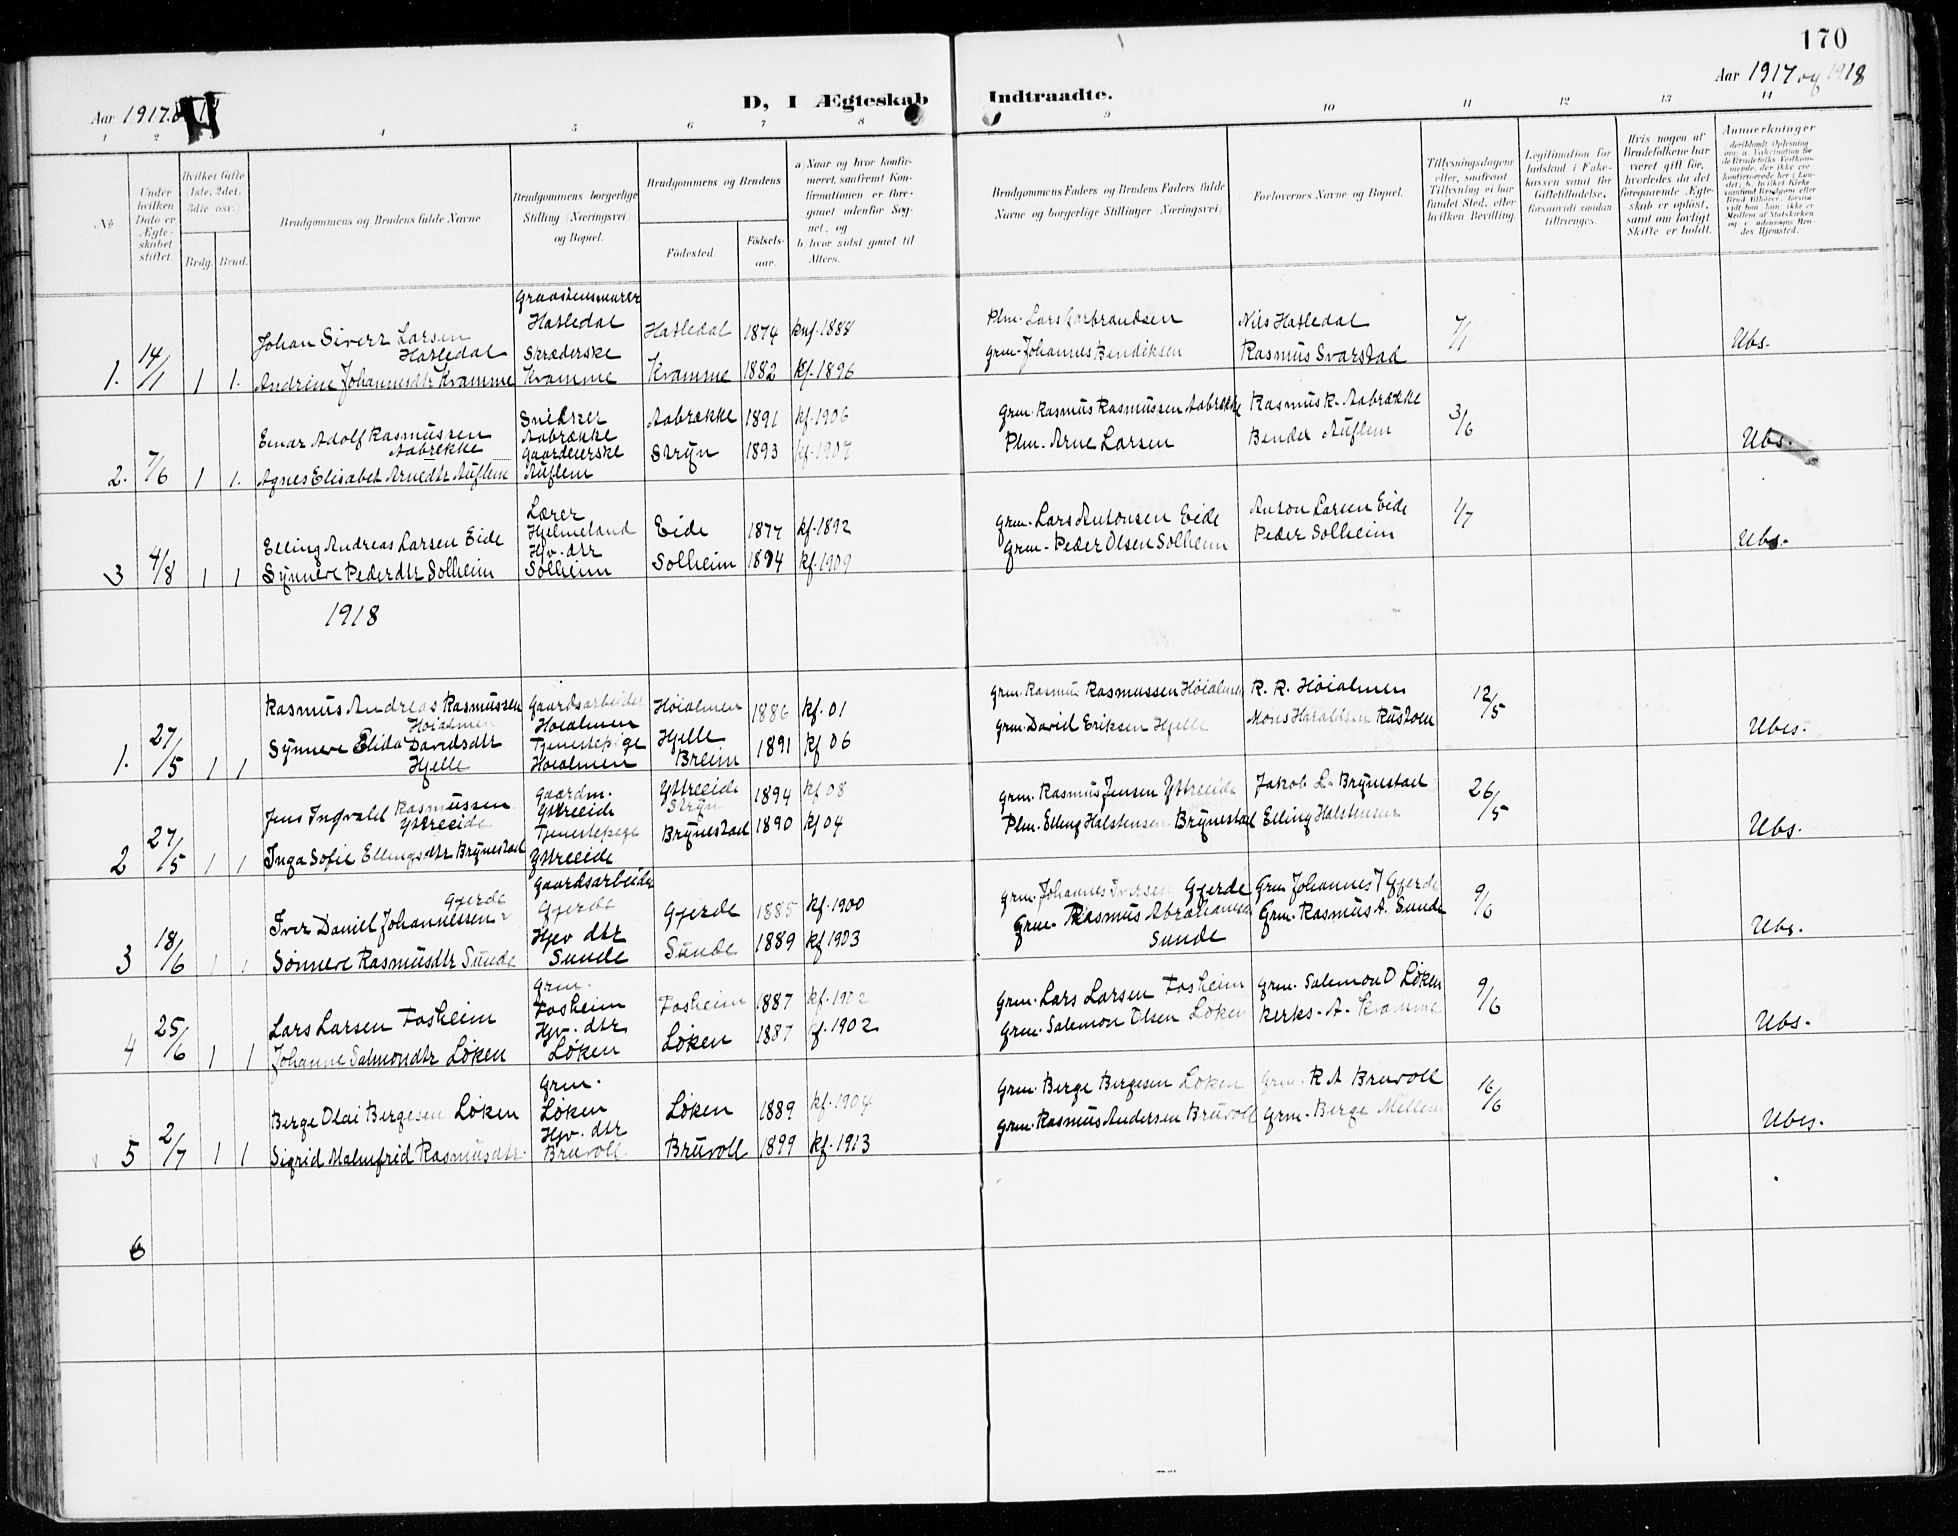 170
Aar 1917
Aar 1917 og 1918
D, I Ægteskab Indtraadte.
1 2 4 5 6 7 8 9 10 11 12 13 14
No.
Under hvilken Dato er Ægteskabet stiftet
Hvilket Gifte 1ste, 2det, 3die osv.
Brdg. Brud.
Brudgommens og Brudens fulde Navne
Brudgommens borgerlige Stilling (Næringsvei) og Bopæl.
Brudgommens og Brudens
Fødested. Fødselsaar.
a) Naar og hvor konfirmeret, saafremt Konfirmationen er foregaaet udenfor Sognet, og
b. hvor sidst gaaet til Alters.
Brudgommens Faders og Brudens Faders fulde Navne og borgerlige Stillinger (Næringsvei)
Forlovernes Navne og Bopæl.
Tillysningsdagene eller, saafremt Tillysning ei har fundet Sted, efter hvilken Bevilling.
Legitimation for Indskud i Enkekassen samt for Giftetilladelse, forsaavidt saadan tiltrænges.
Hvis nogen af Brudefolkene har været gift før, hvorledes da det foregaaende Ægteskab er opløst, samt om lovligt Skifte er holdt.
Anmerkninger
1. 14/1 1 1.
Johan Siver Larsen Hatledal
Graastensmurer Hatledal
Hatledal 1874 knf. 1888
Plm. Lars Garbrandsen
Nils Hatledal
7/1
Ubs.
Andrine Johannesdtr Kvamme
Skræderske Kvamme
Kvamme 1882 kf. 1896
Grm. Johannes Bendiksen
Rasmus Svarstad
2. 7/6 1 1.
Einar Adolf Rasmussen Aabrekke
Snedker Aabrække
Aabrække 1891 kf. 1906
Grm. Rasmus Rasmussen Aabrekke
Rasmus R. Aabrække
3/6
Ubs.
Agnes Elisabet Arnedtr Auflem
Auflem
Stryn 1893 kf. 1907
Plm. Arne Larsen
Bender Auflem
3 4/8 1 1
Elling Andreas Larsen Eide
Lærer Hjelmeland
Eide 1877 kf. 1892
Grm. Lars Antonsen Eide
Anton Larsen Eide
1/7
Ubs.
Synneve Pederdtr Solheim
Hjv. dtr Solheim
Solheim 1894 kf. 1909
Grm. Peder Olsen Solheim
Peder Solheim
1918
1. 27/5 1 1
Rasmus Andreas Rasmussen Høialmen
Gaardsarbeider Høialmen
Høialmen 1886 kf. 01
Grm. Rasmus Rasmussen Høialmen
R. R. Høialmen
12/5
Ubes.
Synneve Elida Davidsdtr Hjelle
Tjenestepige Høialmen
Hjelle Breim 1891 kf 06
Grm. David Eriksen Hjelle
Mons Haraldsen Rustøen
2 27/5 1 1
Jens Ingvald Rasmussen Ytreeide
Gaardm. Ytreeide
Ytreeide Stryn 1894 kf 08
Grm. Rasmus Jensen Ytreeide
Jakob L. Brynestad
26/5
Ubs.
Inga Sofie Ellingsdtr Brynestad
Tjenestepige Ytreeide
Brynestad 1890 kf 04
Plm. Elling Halstensen Brynestad
Elling Halstensen
3 18/6 1 1
Iver Daniel Johannessen Gjerde
Gaardsarbeider Gjerde
Gjerde 1885 kf. 1900
Grm. Johannes Iversen Gjerde
Grm Johannes I Gjerde
9/6
Ubs.
Sønneve Rasmusdtr Sunde
Hjv dtr Sunde
Sunde 1889 kf 1903
Grm. Rasmus Abrahamsen Sunde
Grm. Rasmus A. Sunde
4 25/6 1 1
Lars Larsen Fosheim
Grm. Fosheim
Fosheim 1887 kf. 1902
Grm. Lars Larsen Fosheim
Grm. Salemon O Løken
9/6
Ubs.
Johanne Salmondtr Løken
Hjv. dtr Løken
Løken 1887 kf. 1902
Grm. Salemon Olsen Løken
Kerks. A. Kvamme
5 2/7 1 1
Berge Olai Bergesen Løken
Grm. Løken
Løken 1889 kf. 1904
Grm. Berge Bergesen Løken
Grm. R A Bruvoll
16/6
Ubes.
Sigrid Malmfrid Rasmusdtr.
Hjv. dtr Bruvoll
Bruvoll 1899 kf. 1913
Grm. Rasmus Andersen Bruvoll
Grm. Berge Mellem
6